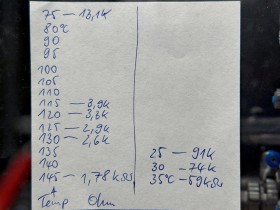 75 — 13,1k
80°C
90
95
100
105
110
115 — 3,9k
120 — 3,3k
125 — 2,9k
130 — 2,6k
135
140
145 — 1,78kΩ
Temp Ohm
25 — 91k
30 — 74k
35°C — 59kΩ